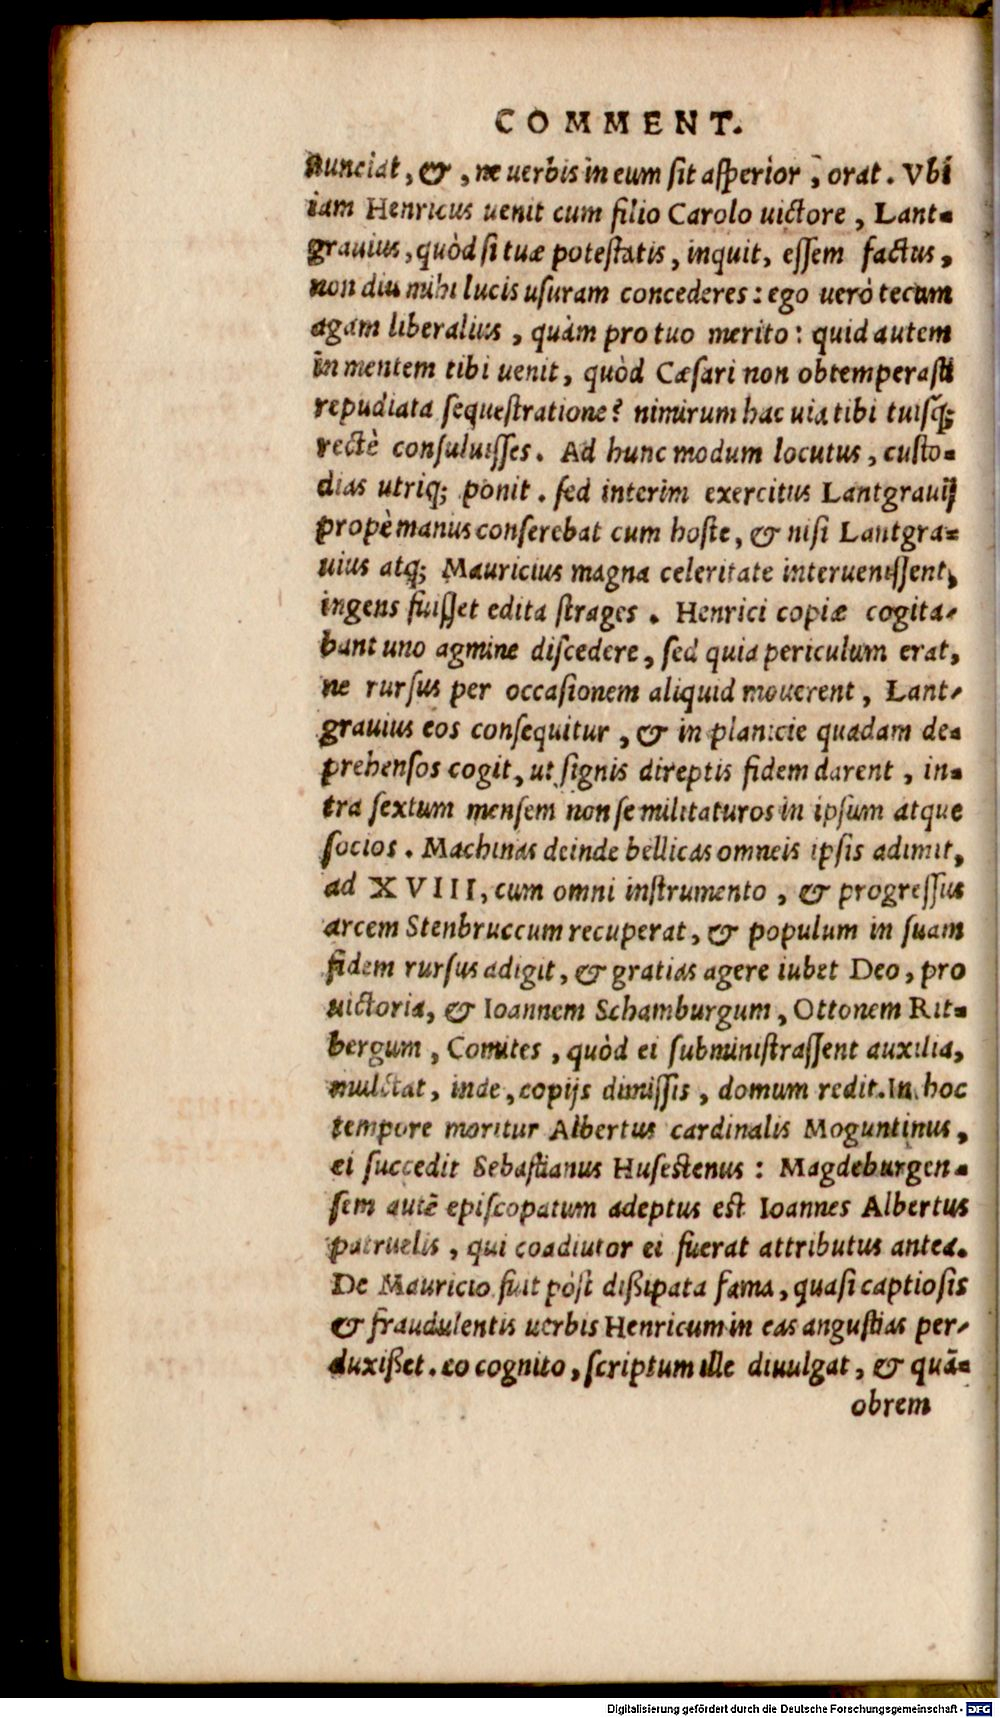 COMMENT.
nunciat, &, ne uerbis in eum sit asperior, orat. Vbi
iam Henricus uenit cum filio Carolo uictore, Lant-
grauius, quòd si tuæ potestatis, inquit, essem factus,
non diu mihi lucis usuram concederes: ego uerò tecum
agam liberalius, quàm pro tuo merito: quid autem
in mentem tibi uenit, quòd Cæsari non obtemperasti
repudiata sequestratione? nimirum hac uia tibi tuisq;
rectè consuluisses. Ad hunc modum locutus, custo-
dias utriq; ponit. sed interim exercitus Lantgrauij
propè manus conserebat cum hoste, & nisi Lantgra-
uius atq; Mauricius magna celeritate interuenissent,
ingens fuisset edita strages. Henrici copiæ cogita-
bant uno agmine discedere, sed quia periculum erat,
ne rursus per occasionem aliquid mouerent, Lant-
grauius eos consequitur, & in planicie quadam de-
prehensos cogit, ut signis direptis fidem darent, in-
tra sextum mensem non se militaturos in ipsum atque
socios. Machinas deinde bellicas omneis ipsis adimit,
ad XVIII, cum omni instrumento, & progressus
arcem Stenbruccum recuperat, & populum in suam
fidem rursus adigit, & gratias agere iubet Deo, pro
uictoria, & Ioannem Schamburgum, Ottonem Rit-
bergum, Comites, quòd ei subministrassent auxilia,
mulctat, inde, copijs dimissis, domum redit. In hoc
tempore moritur Albertus cardinalis Moguntinus,
ei succedit Sebastianus Husestenus: Magdeburgen-
sem autē episcopatum adeptus est Ioannes Albertus
patruelis, qui coadiutor ei fuerat attributus antea.
De Mauricio fuit pòst dißipata fama, quasi captiosis
& fraudulentis uerbis Henricum in eas angustias per-
duxißet. eo cognito, scriptum ille diuulgat, & quā-
obrem
Digitalisierung gefördert durch die Deutsche Forschungsgemeinschaft - DFG